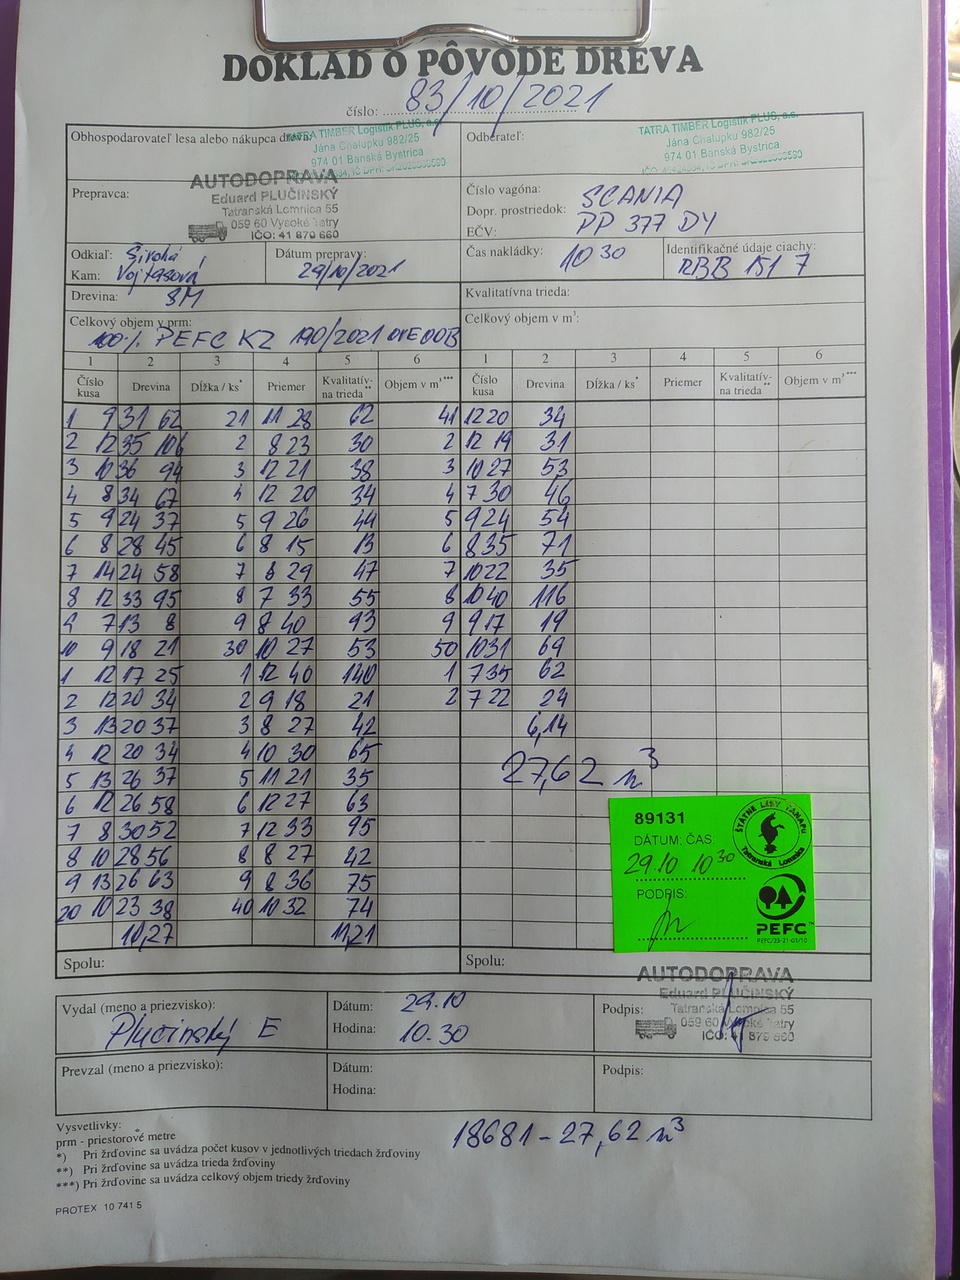 DOKLAD O PÔVODE DREVA
číslo: 83/10/2021
Obhospodarovateľ lesa alebo nákupca dreva:
TATRA TIMBER Logistik PLUS, a.s.
Jána Chalupku 982/25
974 01 Banská Bystrica
Odberateľ:
TATRA TIMBER Logistik PLUS, a.s.
Jána Chalupku 982/25
974 01 Banská Bystrica
Prepravca:
AUTODOPRAVA
Eduard PLUČINSKÝ
Tatranská Lomnica 55
059 60 Vysoké Tatry
IČO: 41 879 660
Číslo vagóna: SCANIA
Dopr. prostriedok:
EČV: PP 377 DY
Odkiaľ: Široká
Kam: Vojtasová
Dátum prepravy:
29/10/2021
Čas nakládky: 10 30
Identifikačné údaje ciachy:
RBB 151 7
Drevina: SM
Kvalitatívna trieda:
Celkový objem v prm:
100% PEFC KZ 190/2021
Celkový objem v m³:
1 2 3 4 5 6 1 2 3 4 5 6
Číslo kusa Drevina Dĺžka / ks* Priemer Kvalitatívna trieda** Objem v m³*** Číslo kusa Drevina Dĺžka / ks* Priemer Kvalitatívna trieda** Objem v m³***
1 9 31 62 21 11 28 62 41 12 20 34
2 12 35 106 2 8 23 30 2 12 19 31
3 10 36 94 3 12 21 38 3 10 27 53
4 8 34 67 4 12 20 34 4 7 30 46
5 9 24 37 5 9 26 44 5 9 24 54
6 8 28 45 6 8 15 13 6 8 35 71
7 14 24 58 7 8 29 47 7 10 22 35
8 12 33 95 8 7 33 55 8 10 40 116
9 7 13 8 9 8 40 93 9 9 17 19
10 9 18 21 30 10 27 53 50 10 31 69
1 12 17 25 1 12 40 140 1 7 35 62
2 12 20 34 2 9 18 21 2 7 22 24
3 13 20 37 3 8 27 42 6,14
4 12 20 34 4 10 30 65
5 13 26 37 5 11 21 35 27,62 m³
6 12 26 58 6 12 27 63
7 8 30 52 7 12 33 95
8 10 28 56 8 8 27 42
9 13 26 63 9 8 36 75
20 10 23 38 40 10 32 74
10,27 11,21
89131
DÁTUM; ČAS
29.10 10 30
PODPIS:
ŠTÁTNE LESY TANAPU
Tatranská Lomnica
PEFC™
PEFC/23-21-03/10
Spolu:
Spolu:
Vydal (meno a priezvisko):
Plucinský E
Dátum: 29.10
Hodina: 10.30
Podpis:
AUTODOPRAVA
Eduard PLUČINSKÝ
Tatranská Lomnica 55
059 60 Vysoké Tatry
IČO: 41 879 660
Prevzal (meno a priezvisko):
Dátum:
Hodina:
Podpis:
18681 - 27,62 m³
Vysvetlivky:
prm - priestorové metre
*) Pri žrďovine sa uvádza počet kusov v jednotlivých triedach žrďoviny
**) Pri žrďovine sa uvádza trieda žrďoviny
***) Pri žrďovine sa uvádza celkový objem triedy žrďoviny
PROTEX 10 741 5